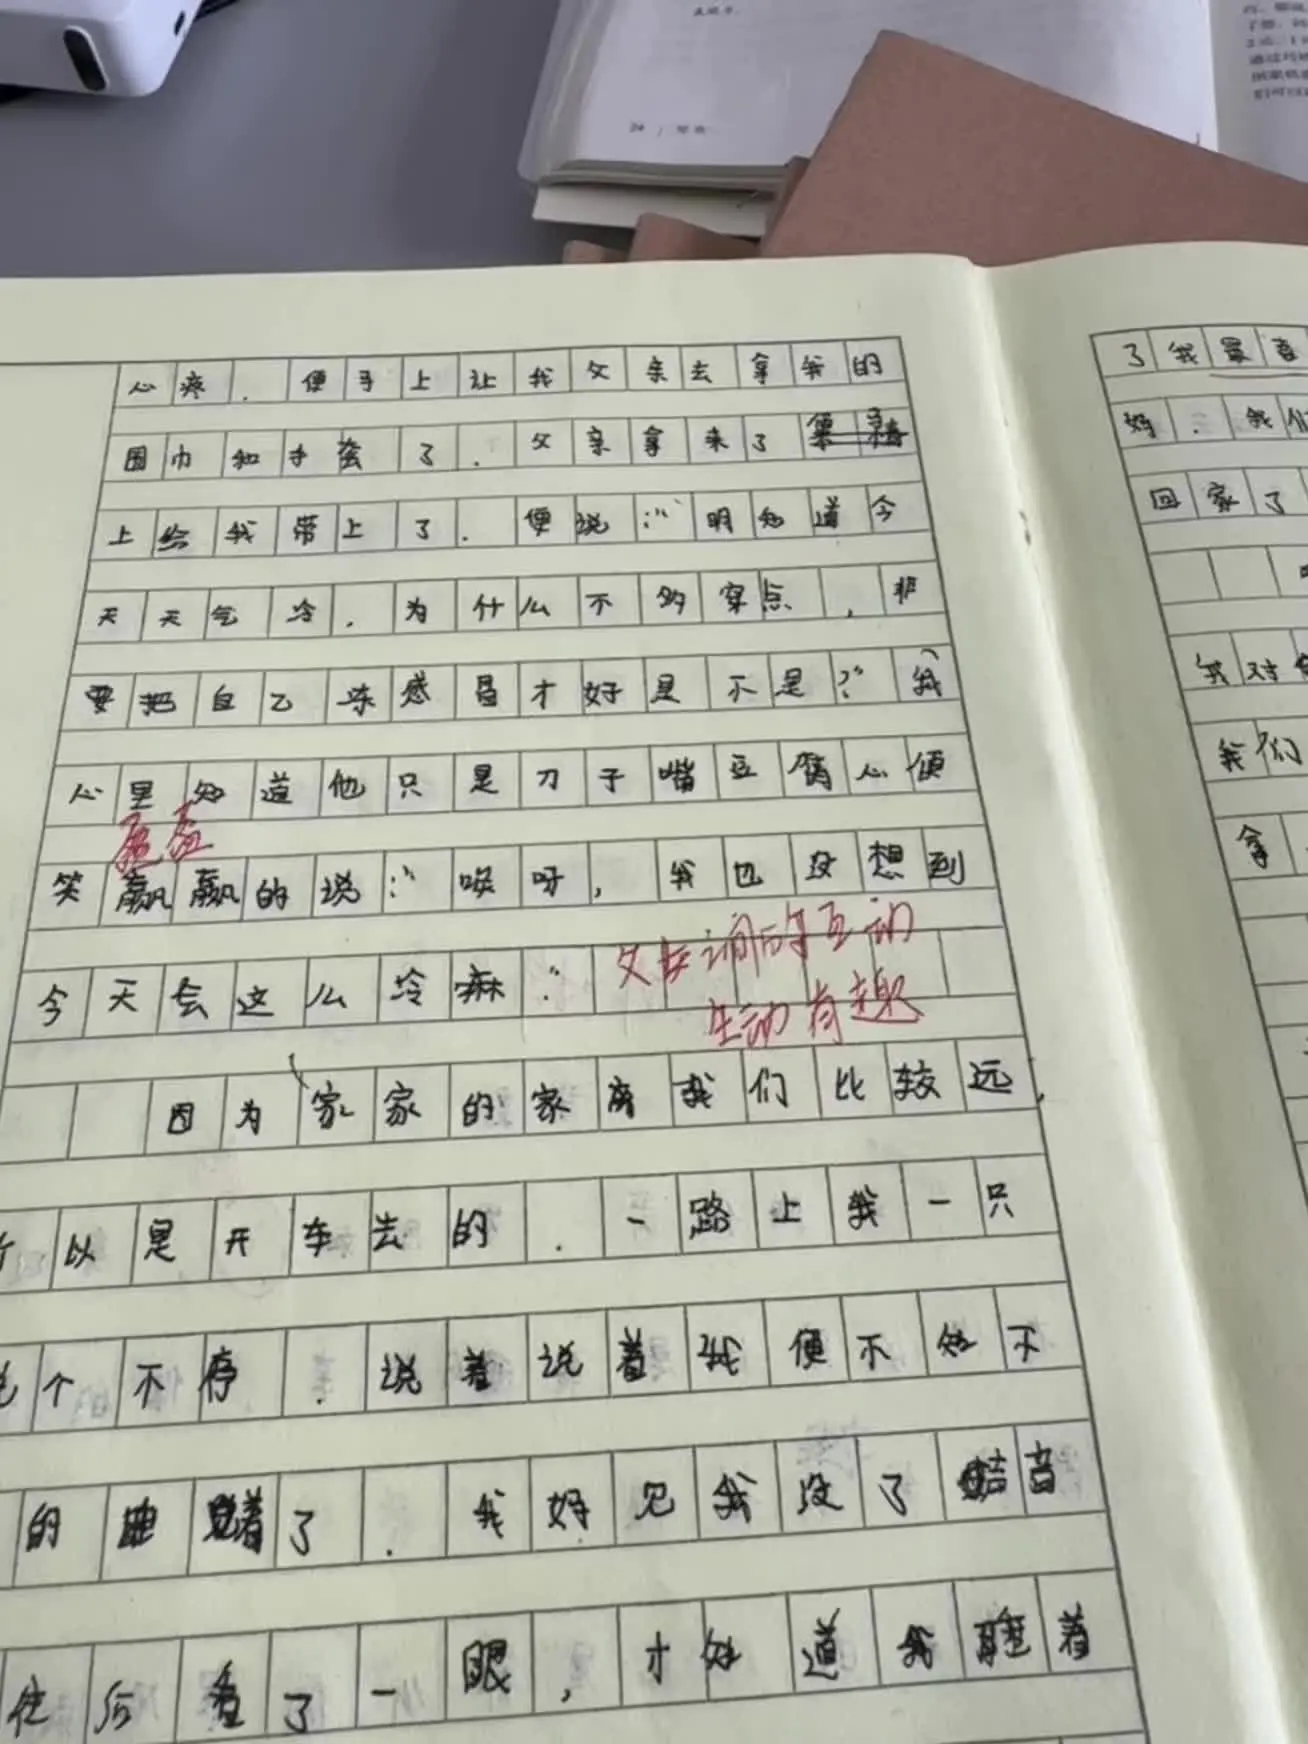 心疼.便手上让我父亲去拿我的
围巾和手套了.父亲拿来了
上给我带上了.便说:“明知道今
天天气冷.为什么不多穿点,非
要把自己冻感冒才好是不是?”我
心里知道他只是刀子嘴豆腐心便
盈盈
笑赢赢的说:“哎呀,我也没想到
今天会这么冷嘛.”
父女间的互动
生动有趣
因为家家的家离我们比较远,
以是开车去的.一路上我一只
个不停.说着说着我便不知不
的睡着了.我好见我没了声音
往后看了一眼,才知道我睡着
了我最喜
好.我们
回家了
我对
我们
拿